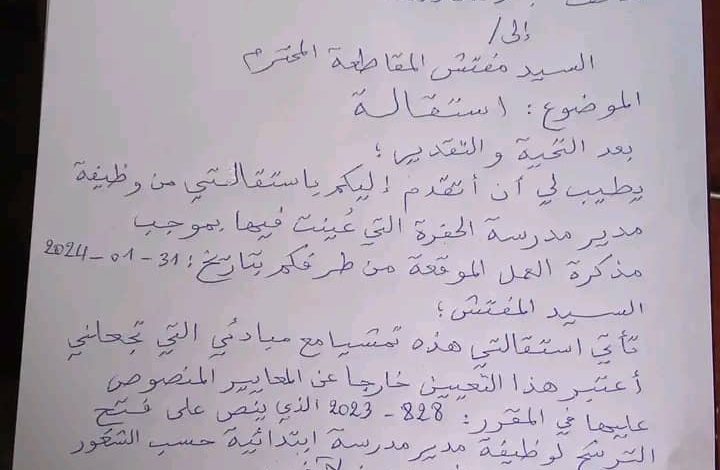 إلى/
السيد مفتش المقاطعة المحترم
الموضوع: استقالة
بعد التحية والتقدير؛
يطيب لي أن أتقدم إليكم باستقالتي من وظيفة
مدير مدرسة الحفرة التي عُينت فيها بموجب
مذكرة العمل الموقعة من طرفكم بتاريخ: 31-01-2024
السيد المفتش؛
تأتي استقالتي هذه تمشيا مع مبادئي التي تجعلني
أعتبر هذا التعيين خارجا عن المعايير المنصوص
عليها في المقرر: 828-2023 الذي ينص على فتح
الترشح لوظيفة مدير مدرسة ابتدائية حسب الشغور